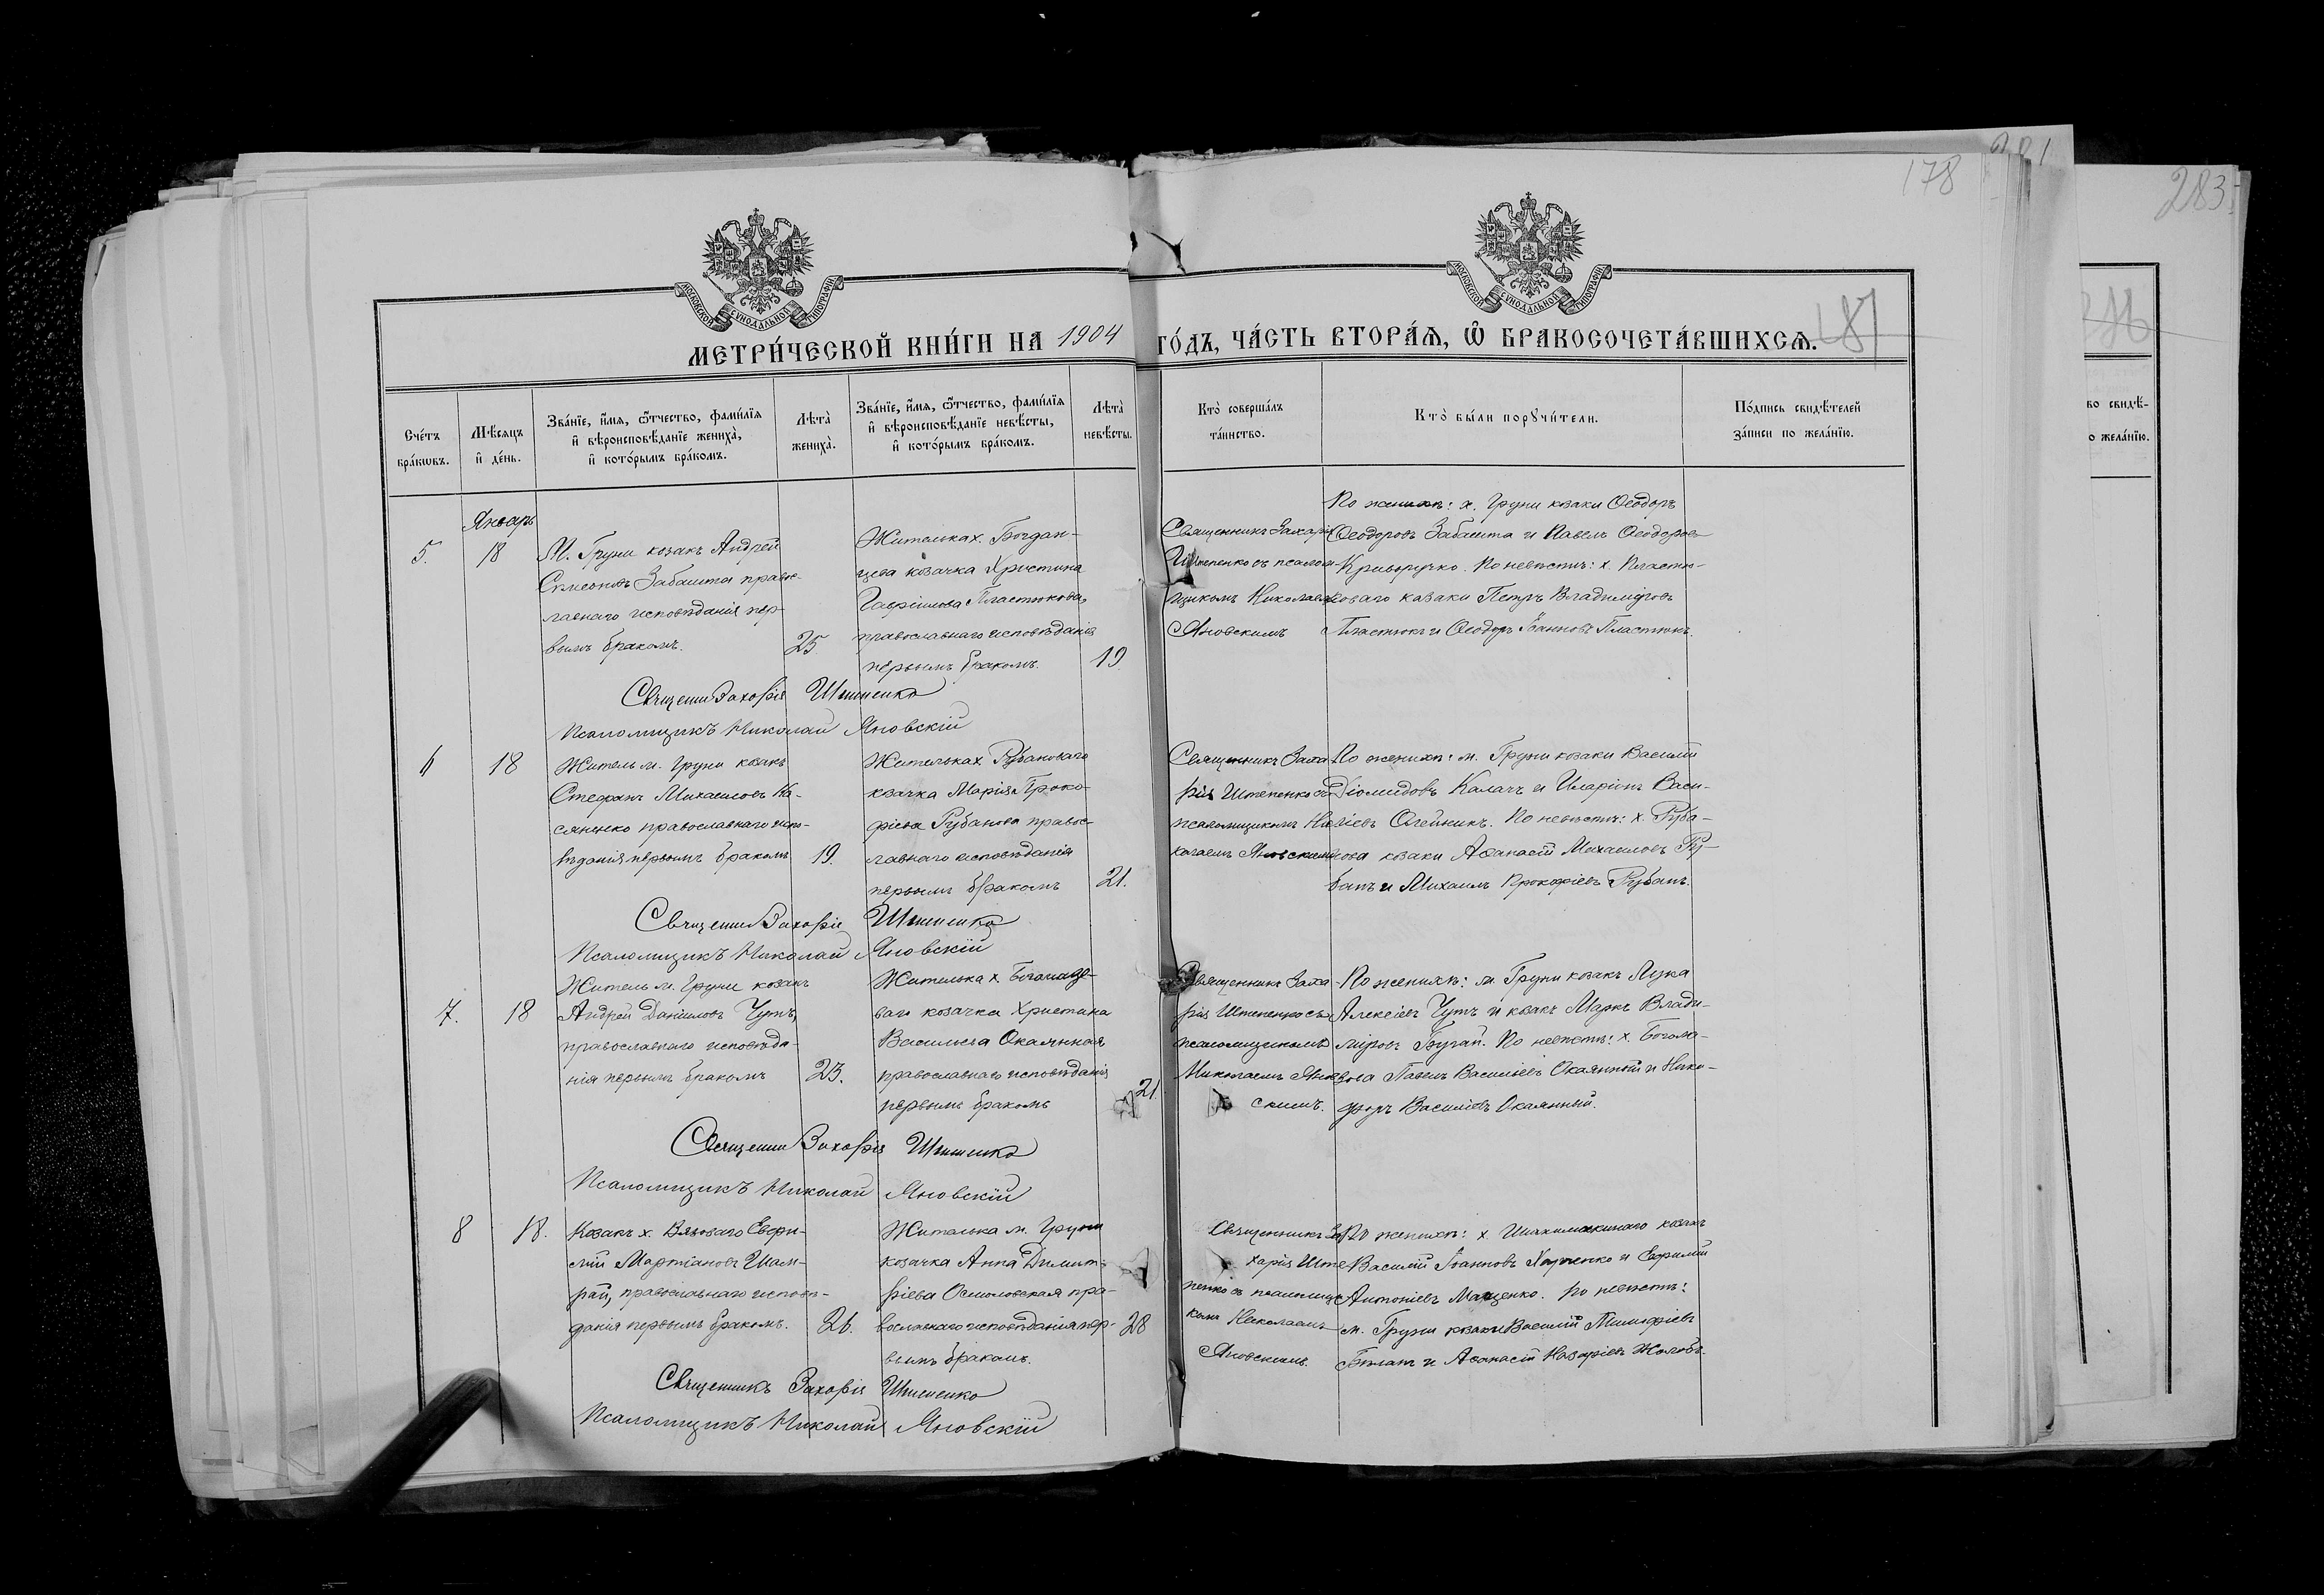 178
281
283
МОСКОВСКОЙ СѴНОДАЛЬНОЙ ТИПОГРАФІИ
МОСКОВСКОЙ СѴНОДАЛЬНОЙ ТИПОГРАФІИ
187
МЕТРИ́ЧЕСКОЙ КНИ́ГИ НА 1904 ГО́ДЪ, ЧА́СТЬ ВТОРА́Ѧ, Ѡ҆ БРАКОСОЧЕТА́ВШИХСѦ.
Сче́тъ
бра́кѡвъ.
Мѣ́сяцъ
и҆ де́нь.
Зва́нїе, и҆́мѧ, ѻ҆́тчество, фами́лїѧ
и҆ вѣроисповѣ́данїе жениха̀,
и҆ кото́рымъ бра́комъ.
Лѣта̀
жениха̀.
Зва́нїе, и҆́мѧ, ѻ҆́тчество, фами́лїѧ
и҆ вѣроисповѣ́данїе невѣ́сты,
и҆ кото́рымъ бра́комъ.
Лѣта̀
невѣ́сты.
Кто̀ соверша́лъ
та́инство.
Кто̀ бы́ли порꙋчи́тели.
По́дпись свидѣ́телей
за́писи по жела́нїю.
во свидѣ́-
о жела́нїю.
Январь
5.
18
М. Груни козакъ Андрей
Симеоновъ Забашта правос-
лавнаго исповѣданія пер-
вымъ бракомъ.
25
Жителька х. Богдан-
цева козачка Христина
Гавріилова Пластюкова,
православнаго исповѣданія
первымъ бракомъ.
19.
Священникъ Захарія
Штепенко съ псалом-
щикомъ Николаемъ
Яновскимъ
По женихѣ: х. Груни козаки Ѳеодоръ
Ѳеодоровъ Забашта и Павелъ Ѳеодоровъ
Криворучко. По невѣстѣ: х. Пластю-
коваго козаки Петръ Владиміровъ
Пластюкъ и Ѳеодоръ Іоанновъ Пластюкъ.
Священни Захарія Штепенко
Псаломщикъ Николай Яновскій
6
18
Житель м. Груни козакъ
Стефанъ Михаиловъ Ка-
сяненко православнаго испо-
вѣданія первымъ бракомъ
19.
Жителька х. Рубановаго
козачка Марія Проко-
фіева Рубанова правос-
лавнаго исповѣданія
первымъ бракомъ
21.
Священникъ Заха-
рія Штепенко съ
псаломщикомъ Ни-
колаемъ Яновскимъ
По женихѣ: м. Груни козаки Василій
Діомидовъ Калачъ и Иларіонъ Васи-
ліевъ Олейникъ. По невѣстѣ: х. Руба-
нова козаки Аѳанасій Михаиловъ Ру-
банъ и Михаилъ Прокофіевъ Рубанъ.
Священни Захарія Штепенко
Псаломщикъ Николай Яновскій
7.
18
Житель м. Груни козакъ
Андрей Даніиловъ Чутъ,
православнаго исповѣда-
нія первымъ бракомъ
23.
Жителька х. Богомазо-
ваго козачка Христина
Васильева Окаянная
православнаго исповѣданія
первымъ бракомъ
21.
Священникъ Заха-
рія Штепенко съ
псаломщикомъ
Николаемъ Янов-
скимъ.
По женихѣ: м. Груни козакъ Лука
Алексіевъ Чутъ и козакъ Маркъ Влади-
міровъ Бугай. По невѣстѣ: х. Богома-
зова Павелъ Васильевъ Окаянный и Ники-
форъ Василіевъ Окаянный.
Священни Захарія Штепенко
Псаломщикъ Николай Яновскій
8
18.
Козакъ х. Вязоваго Евфи-
мій Мартіановъ Шам-
рай, православнаго исповѣ-
данія первымъ бракомъ.
26.
Жителька м. Груни
козачка Анна Димит-
ріева Осмоловская пра-
вославнаго исповѣданія пер-
вымъ бракомъ.
28
Священникъ За-
харіяШте-
пенко съ псаломщи-
комъ Николаемъ
Яновскимъ.
По женихѣ: х. козакъ
Василій Іоанновъ Харченко и Евфимій
Антоніевъ Маценко. По невѣстѣ:
м. Груни козаки Василій
и Аѳанасій Назаріевъ
Священникъ Захарія Штепенко
Псаломщикъ Николай Яновскій